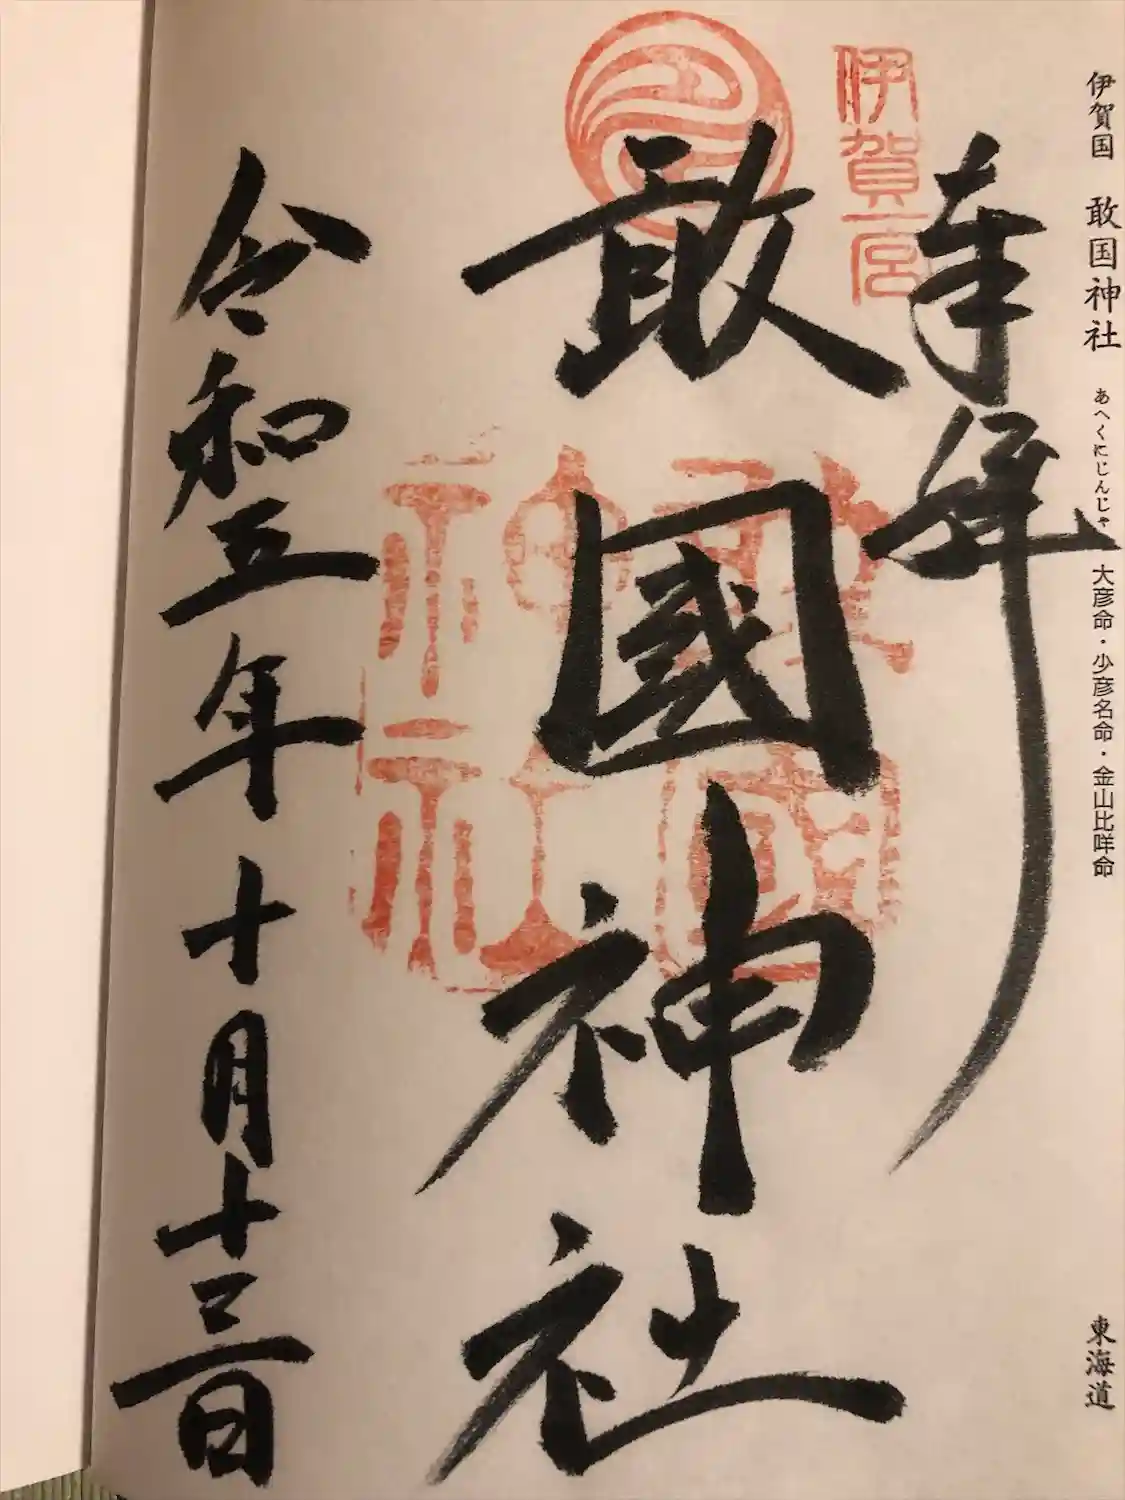 伊賀国 敢国神社 あへくにじんじゃ 大彦命・少彦名命・金山比咩命 東海道
奉拝
伊賀一宮
敢國神社
敢國神社
令和五年十月十三日